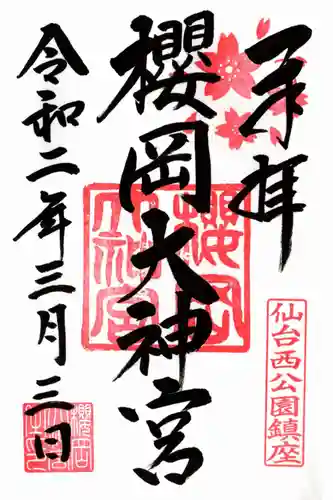 奉拝
仙台西公園鎮座
櫻岡大神宮
櫻岡大神宮
令和二年三月三日